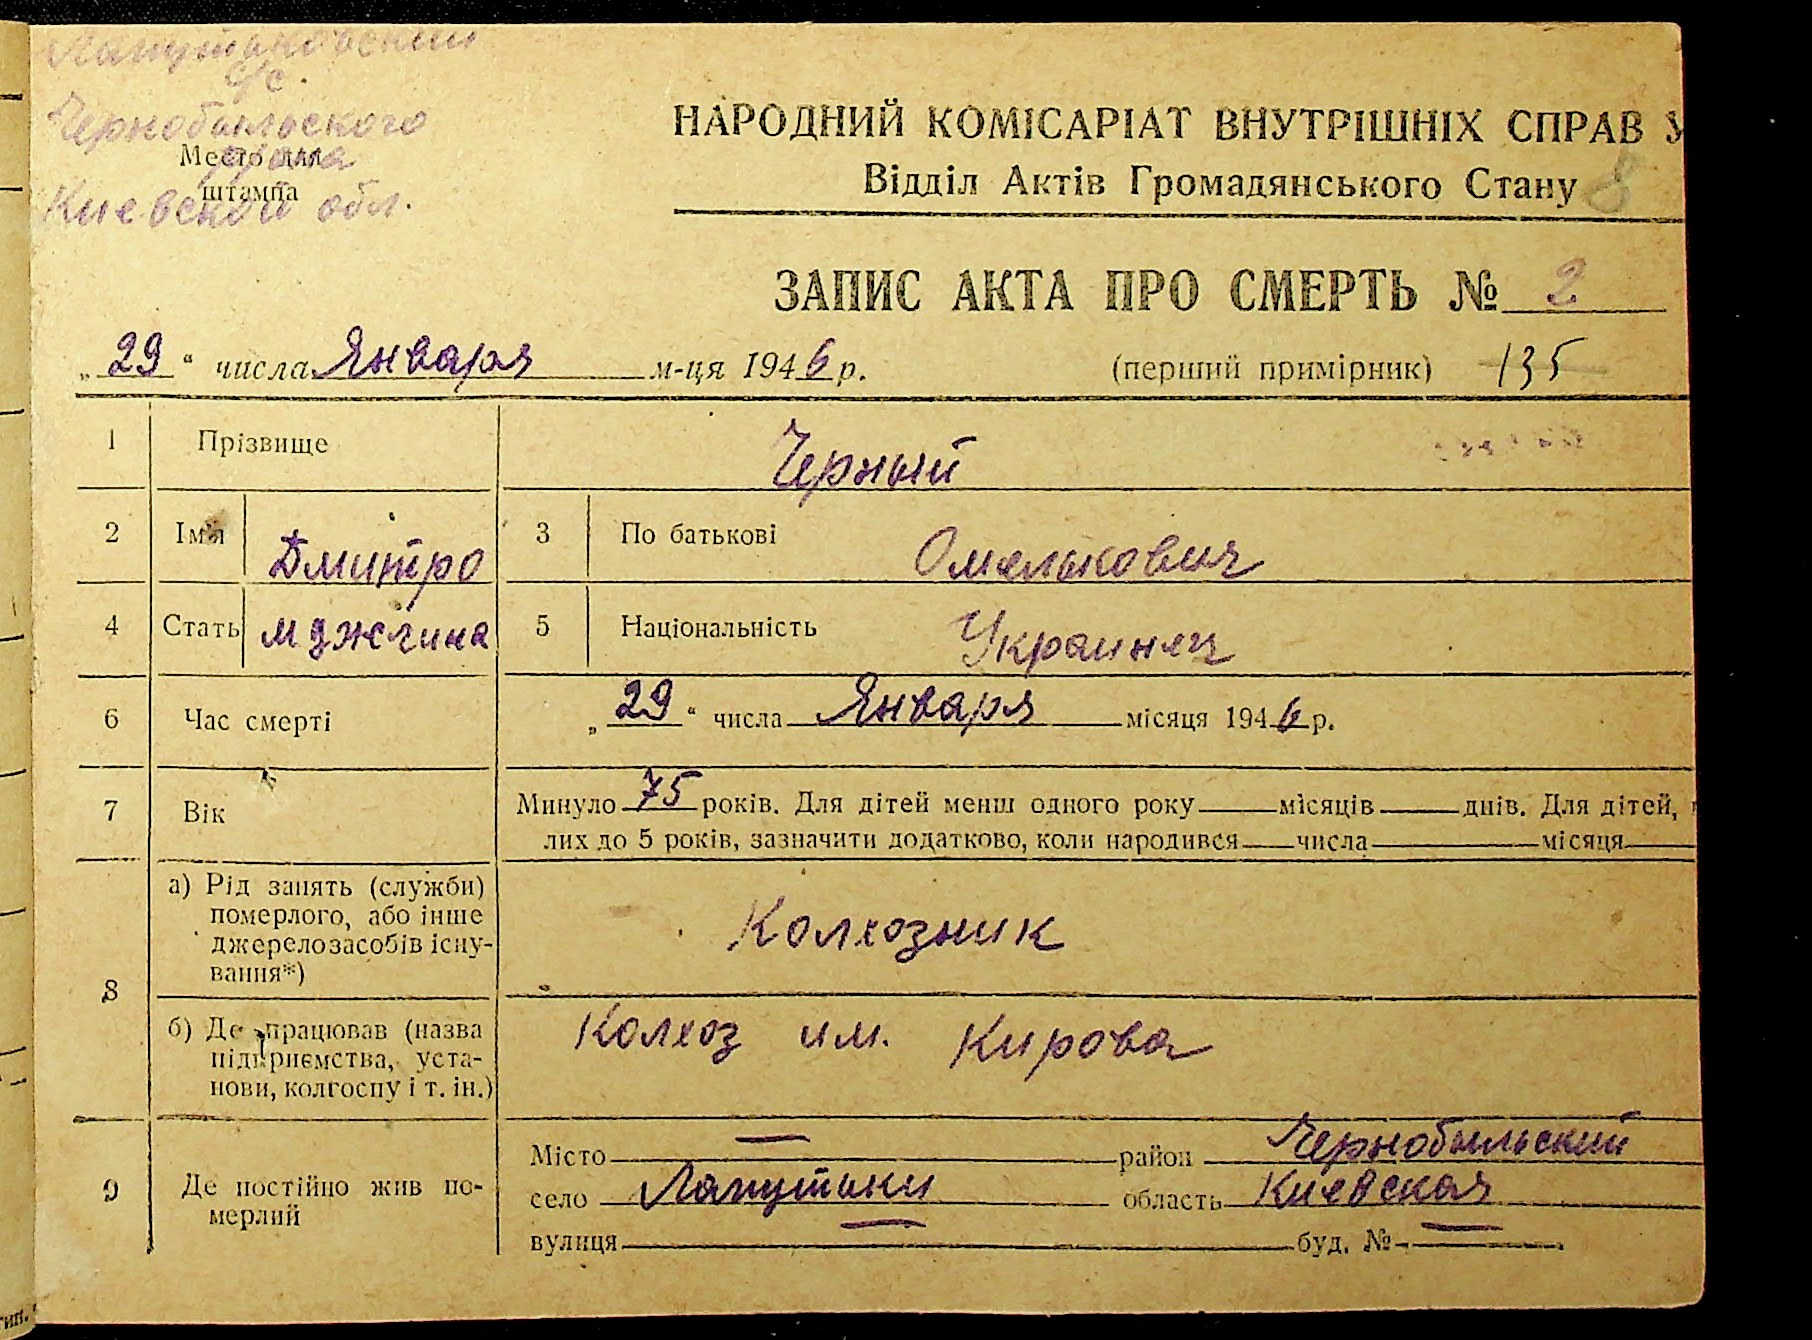 Лапутьковский
с/с.
Чернобыльского
Место для
района
штампа
Киевской обл.
НАРОДНИЙ КОМІСАРІАТ ВНУТРІШНІХ СПРАВ У
Відділ Актів Громадянського Стану 8
ЗАПИС АКТА ПРО СМЕРТЬ № 2
„29“ числа Января м-ця 1946 р. (перший примірник) 135
1 Прізвище Черный
2 Ім'я Дмитро 3 По батькові Омелькович
4 Стать мджчина 5 Національність Украинец
6 Час смерті „29“ числа Января місяця 1946 р.
7 Вік Минуло 75 років. Для дітей менш одного року — місяців — днів. Для дітей,
лих до 5 років, зазначити додатково, коли народився — числа — місяця —
а) Рід занять (служби)
померлого, або інше
джерело засобів існу-
вання*)
Колхозник
8
б) Де працював (назва
підприємства, уста-
нови, колгоспу і т. ін.)
Колхоз им. Кирова
9 Де постійно жив по-
мерлий
Місто — район Чернобыльский
село Лапутьки область Киевская
вулиця — буд. № —
тип.